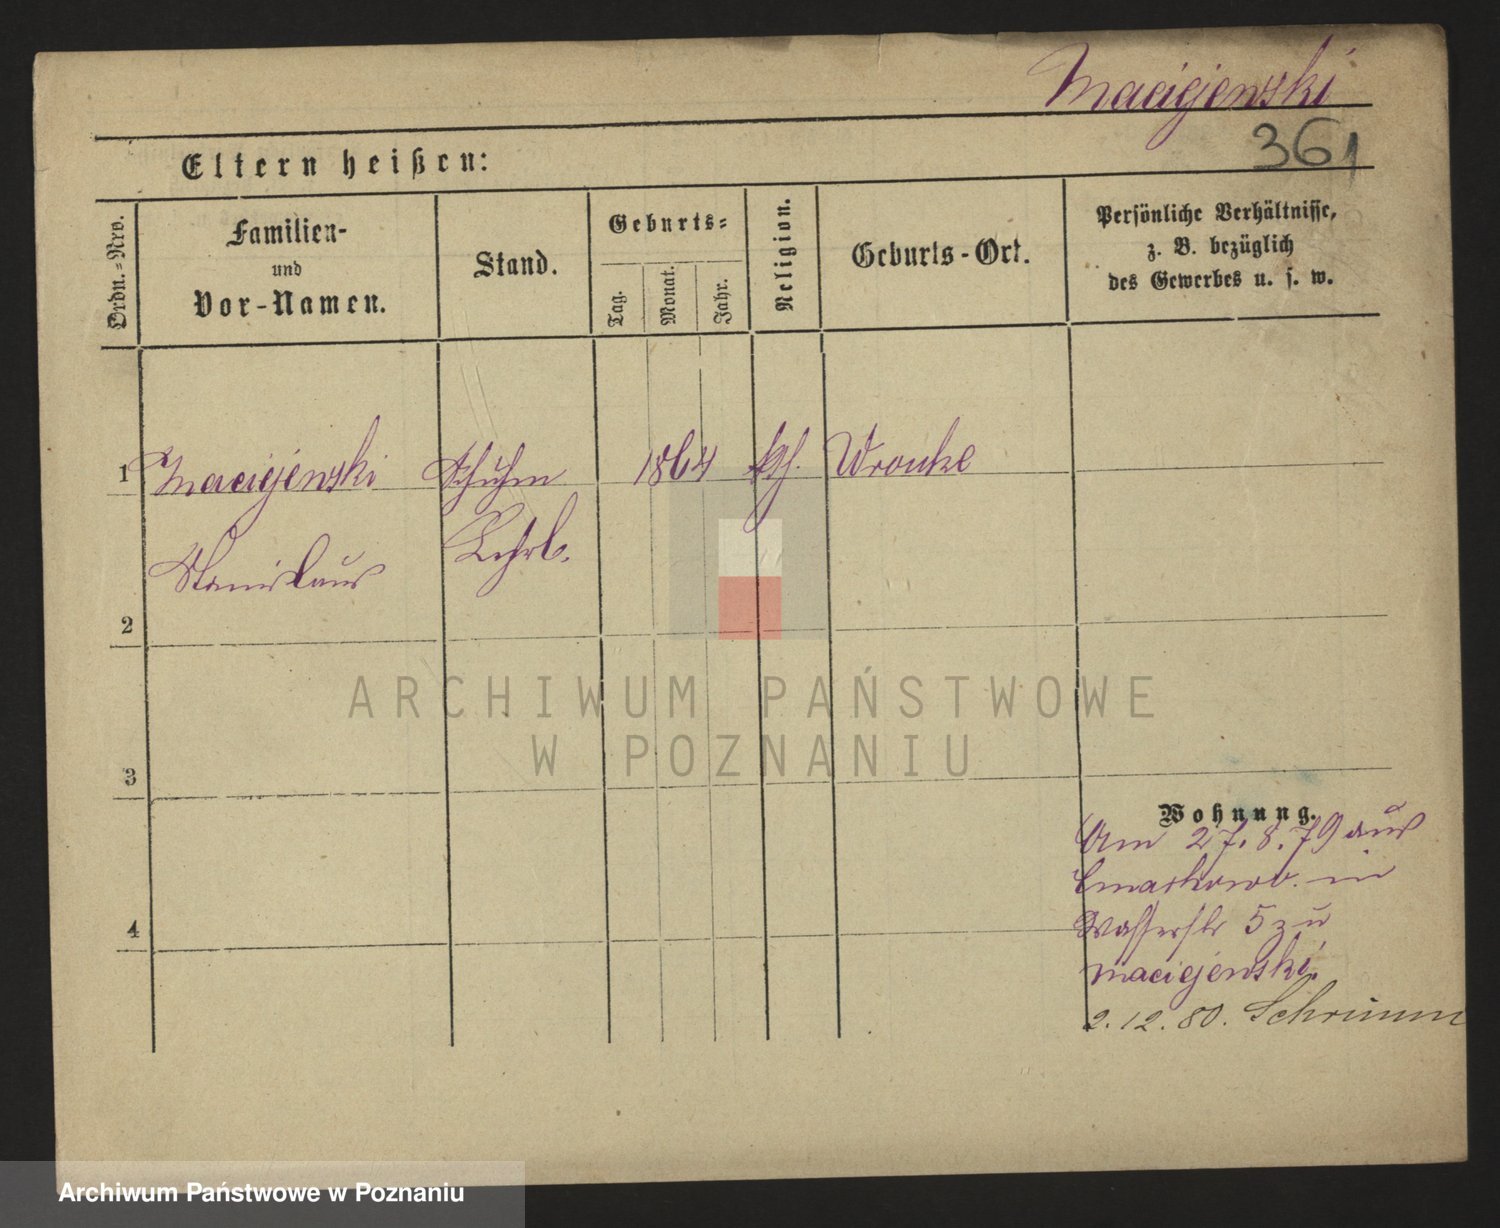 Maciejewski
361
Eltern heißen:
Ordn.=Nro.
Familien-
und
Vor-Namen.
Stand.
Geburts=
Tag.
Monat.
Jahr.
Religion.
Geburts-Ort.
Persönliche Verhältnisse,
z. B. bezüglich
des Gewerbes u. s. w.
1 Maciejewski Schuhm 1864 kth. Wronke
Stanislaus Lehrl.
2
3
4
Wohnung.
Am 27.8.79 aus
in
Wasserstr 5 zu
Maciejewski.
2.12.80. Schrimm
ARCHIWUM PAŃSTWOWE
W POZNANIU
Archiwum Państwowe w Poznaniu